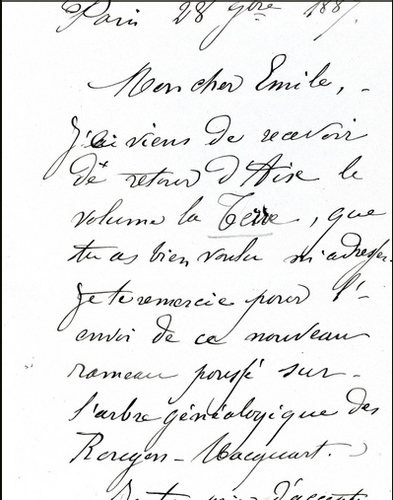 Paris 28 9bre 1887
Mon cher Emile,
J'ai viens de recevoir
de retour d'Aix le
volume la Terre, que
tu as bien voulu m'adresser.
Je te remercie pour l'-
envoi de ce nouveau
rameau poussé sur
l'arbre généalogique des
Rougon-Macquart.